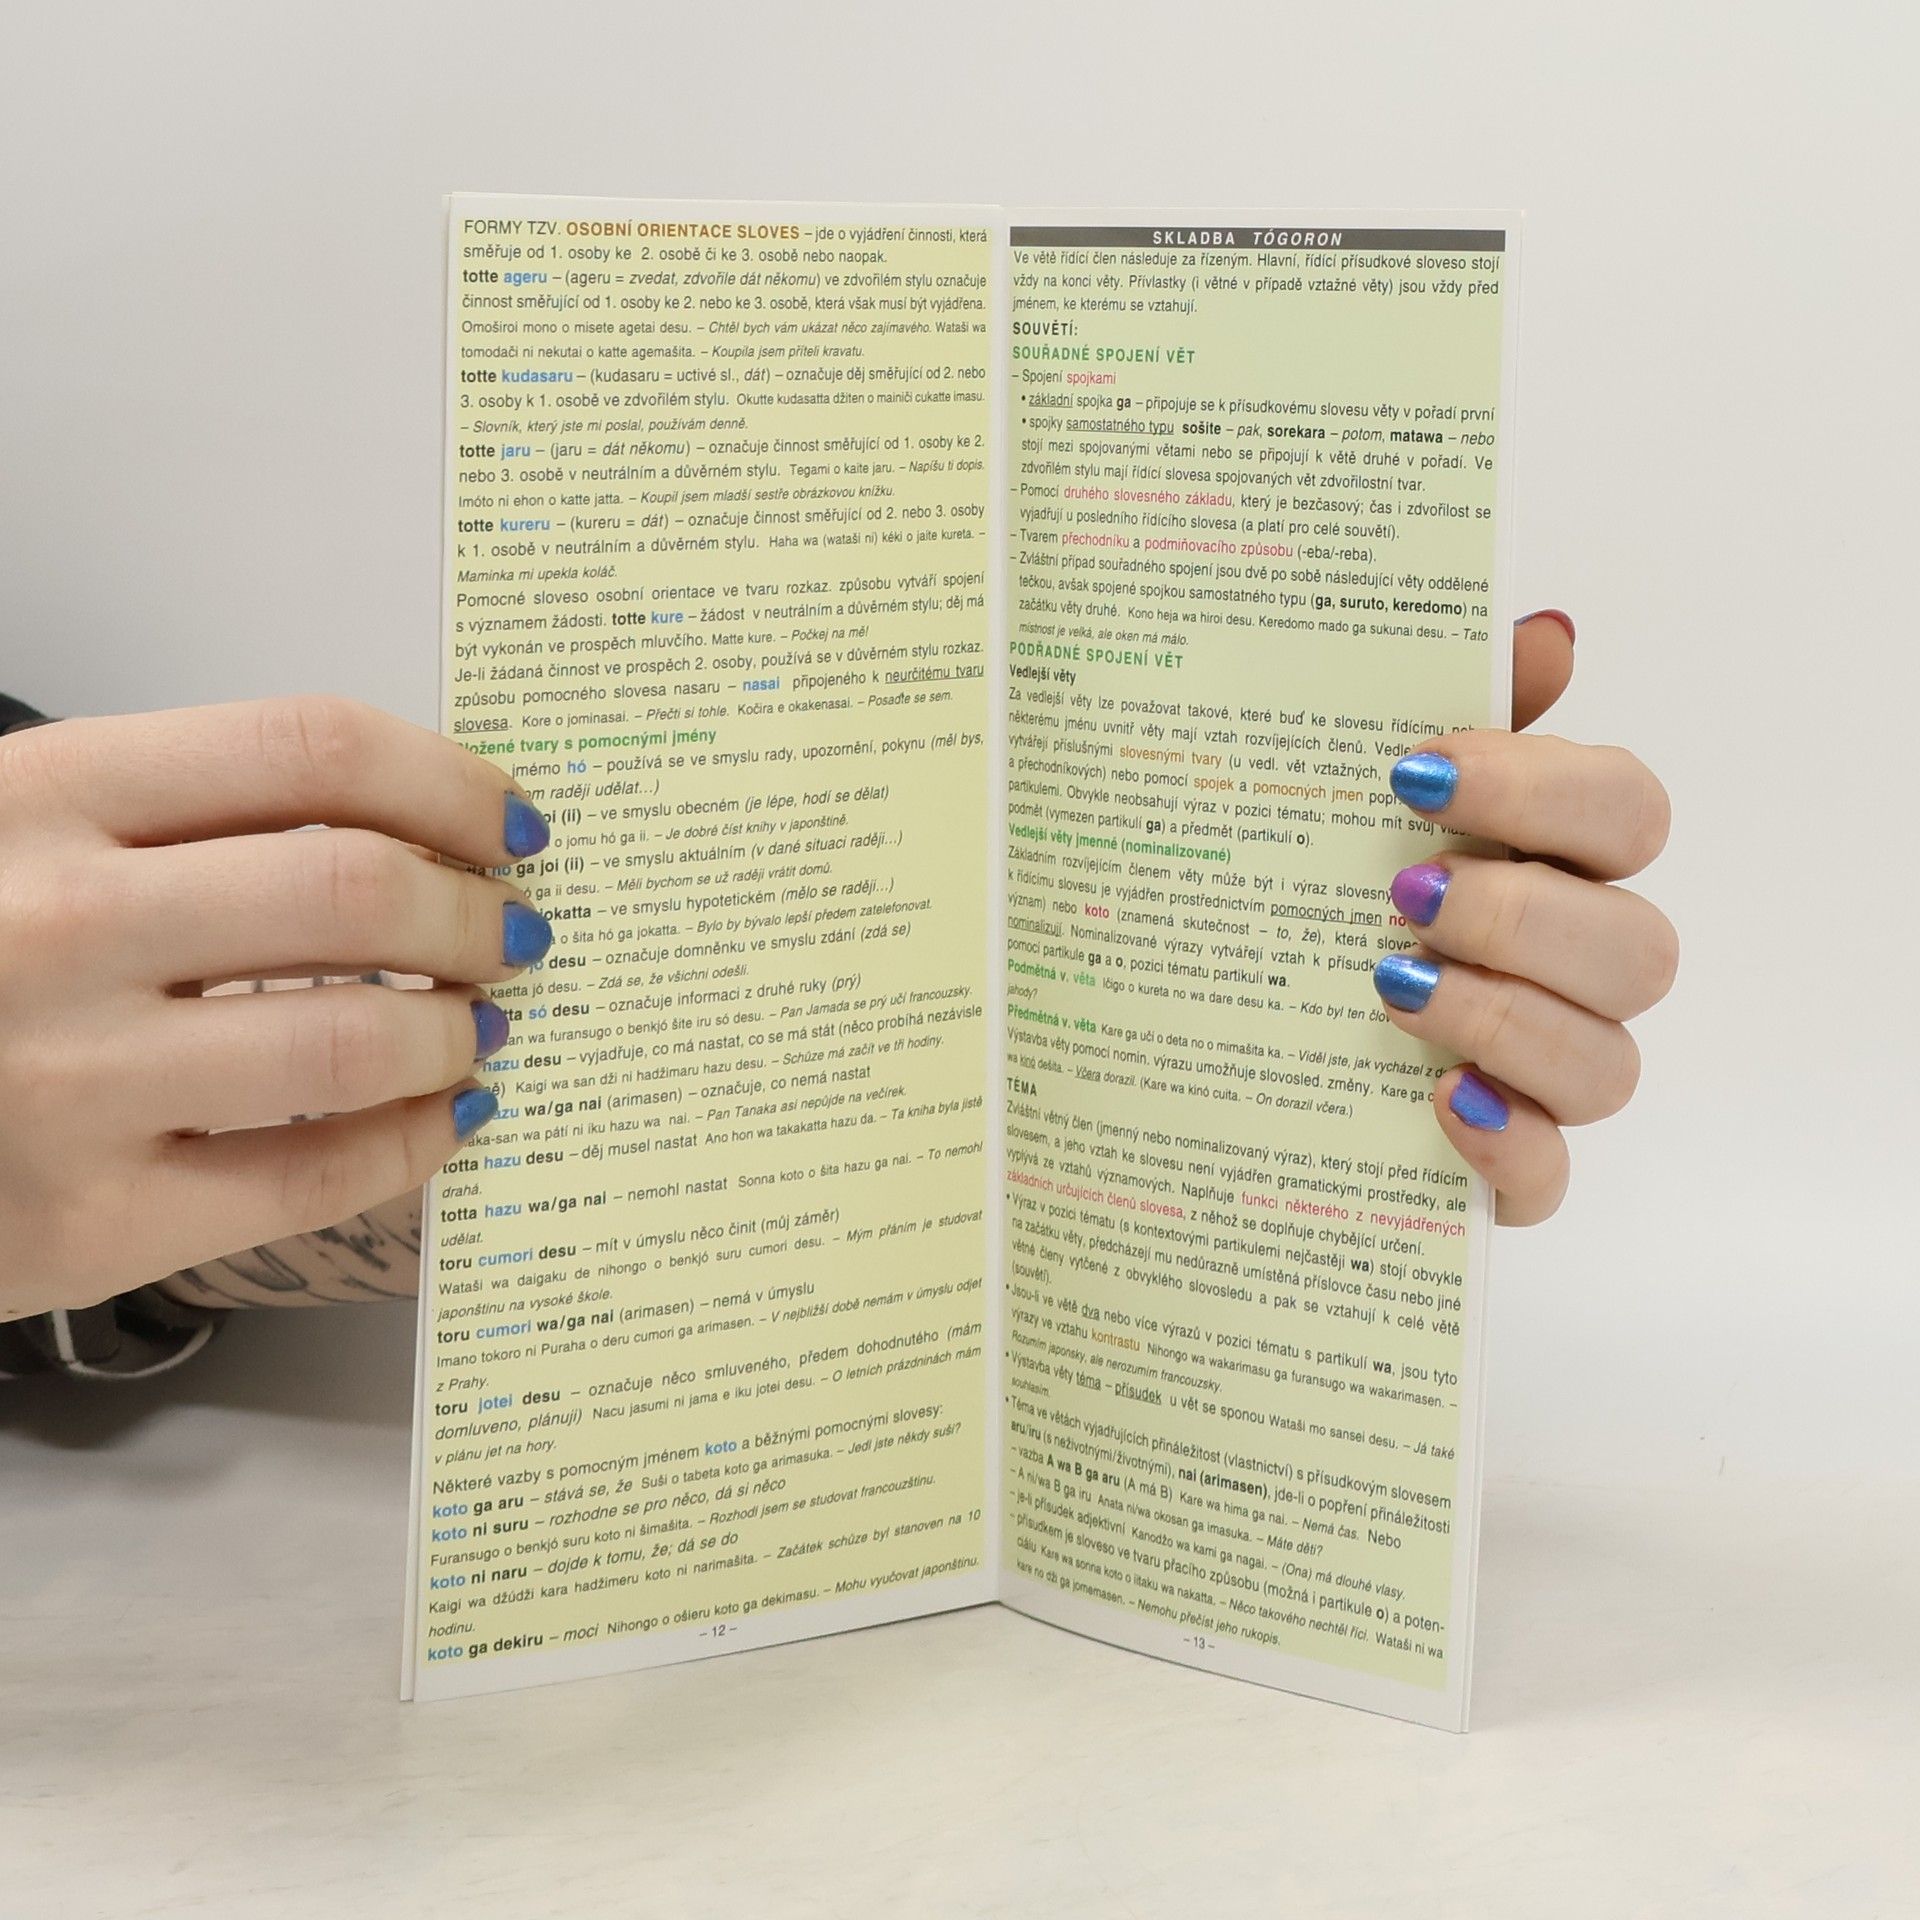 FORMY TZV. OSOBNÍ ORIENTACE SLOVES – jde o vyjádření činnosti, která
směřuje od 1. osoby ke 2. osobě či ke 3. osobě nebo naopak.
totte ageru – (ageru = zvedat, zdvořile dát někomu) ve zdvořilém stylu označuje
činnost směřující od 1. osoby ke 2. nebo ke 3. osobě, která však musí být vyjádřena.
Omoširoi mono o misete agetai desu. – Chtěl bych vám ukázat něco zajímavého. Wataši wa
tomodači ni nekutai o katte agemašita. – Koupila jsem příteli kravatu.
totte kudasaru – (kudasaru = uctivé sl., dát) – označuje děj směřující od 2. nebo
3. osoby k 1. osobě ve zdvořilém stylu. Okutte kudasatta džiten o mainiči cukatte imasu.
– Slovník, který jste mi poslal, používám denně.
totte jaru – (jaru = dát někomu) – označuje činnost směřující od 1. osoby ke 2.
nebo 3. osobě v neutrálním a důvěrném stylu. Tegami o kaite jaru. – Napíšu ti dopis.
Imóto ni ehon o katte jatta. – Koupil jsem mladší sestře obrázkovou knížku.
totte kureru – (kureru = dát) – označuje činnost směřující od 2. nebo 3. osoby
k 1. osobě v neutrálním a důvěrném stylu. Haha wa (wataši ni) kéki o jaite kureta. –
Maminka mi upekla koláč.
Pomocné sloveso osobní orientace ve tvaru rozkaz. způsobu vytváří spojení
s významem žádosti. totte kure – žádost v neutrálním a důvěrném stylu; děj má
být vykonán ve prospěch mluvčího. Matte kure. – Počkej na mě!
Je-li žádaná činnost ve prospěch 2. osoby, používá se v důvěrném stylu rozkaz.
způsobu pomocného slovesa nasaru – nasai připojeného k neurčitému tvaru
slovesa. Kore o jominasai. – Přečti si tohle. Kočira e okakenasai. – Posaďte se sem.
tvary s pomocnými jmény
jmémo hó – používá se ve smyslu rady, upozornění, pokynu (měl bys,
raději udělat...)
(ii) – ve smyslu obecném (je lépe, hodí se dělat)
o jomu hó ga ii. – Je dobré číst knihy v japonštině.
ga joi (ii) – ve smyslu aktuálním (v dané situaci raději...)
ga ii desu. – Měli bychom se už raději vrátit domů.
jokatta – ve smyslu hypotetickém (mělo se raději...)
o šita hó ga jokatta. – Bylo by bývalo lepší předem zatelefonovat.
desu – označuje domněnku ve smyslu zdání (zdá se)
kaetta jó desu. – Zdá se, že všichni odešli.
só desu – označuje informaci z druhé ruky (prý)
wa furansugo o benkjó šite iru só desu. – Pan Jamada se prý učí francouzsky.
hazu desu – vyjadřuje, co má nastat, co se má stát (něco probíhá nezávisle
Kaigi wa san dži ni hadžimaru hazu desu. – Schůze má začít ve tři hodiny.
wa/ga nai (arimasen) – označuje, co nemá nastat
wa pátí ni iku hazu wa nai. – Pan Tanaka asi nepůjde na večírek.
totta hazu desu – děj musel nastat Ano hon wa takakatta hazu da. – Ta kniha byla jistě
drahá.
totta hazu wa/ga nai – nemohl nastat Sonna koto o šita hazu ga nai. – To nemohl
udělat.
toru cumori desu – mít v úmyslu něco činit (můj záměr)
Wataši wa daigaku de nihongo o benkjó suru cumori desu. – Mým přáním je studovat
japonštinu na vysoké škole.
toru cumori wa/ga nai (arimasen) – nemá v úmyslu
Imano tokoro ni Puraha o deru cumori ga arimasen. – V nejbližší době nemám v úmyslu odjet
z Prahy.
toru jotei desu – označuje něco smluveného, předem dohodnutého (mám
domluveno, plánuji) Nacu jasumi ni jama e iku jotei desu. – O letních prázdninách mám
v plánu jet na hory.
Některé vazby s pomocným jménem koto a běžnými pomocnými slovesy:
koto ga aru – stává se, že Suši o tabeta koto ga arimasuka. – Jedl jste někdy suši?
koto ni suru – rozhodne se pro něco, dá si něco
Furansugo o benkjó suru koto ni šimašita. – Rozhodl jsem se studovat francouzštinu.
koto ni naru – dojde k tomu, že; dá se do
Kaigi wa džúdži kara hadžimeru koto ni narimašita. – Začátek schůze byl stanoven na 10
hodinu.
koto ga dekiru – moci Nihongo o ošieru koto ga dekimasu. – Mohu vyučovat japonštinu.
– 12 –
SKLADBA TÓGORON
Ve větě řídící člen následuje za řízeným. Hlavní, řídící přísudkové sloveso stojí
vždy na konci věty. Přívlastky (i větné v případě vztažné věty) jsou vždy před
jménem, ke kterému se vztahují.
SOUVĚTÍ:
SOUŘADNÉ SPOJENÍ VĚT
– Spojení spojkami
• základní spojka ga – připojuje se k přísudkovému slovesu věty v pořadí první
• spojky samostatného typu sošite – pak, sorekara – potom, matawa – nebo
stojí mezi spojovanými větami nebo se připojují k větě druhé v pořadí. Ve
zdvořilém stylu mají řídící slovesa spojovaných vět zdvořilostní tvar.
– Pomocí druhého slovesného základu, který je bezčasový; čas i zdvořilost se
vyjadřují u posledního řídícího slovesa (a platí pro celé souvětí).
– Tvarem přechodníku a podmiňovacího způsobu (-eba/-reba).
– Zvláštní případ souřadného spojení jsou dvě po sobě následující věty oddělené
tečkou, avšak spojené spojkou samostatného typu (ga, suruto, keredomo) na
začátku věty druhé. Kono heja wa hiroi desu. Keredomo mado ga sukunai desu. – Tato
místnost je velká, ale oken má málo.
PODŘADNÉ SPOJENÍ VĚT
Vedlejší věty
Za vedlejší věty lze považovat takové, které buď ke slovesu řídícímu
některému jménu uvnitř věty mají vztah rozvíjejících členů.
vytvářejí příslušnými slovesnými tvary (u vedl. vět vztažných,
a přechodníkových) nebo pomocí spojek a pomocných jmen
partikulemi. Obvykle neobsahují výraz v pozici tématu; mohou mít svůj
podmět (vymezen partikulí ga) a předmět (partikulí o).
Vedlejší věty jmenné (nominalizované)
Základním rozvíjejícím členem věty může být i výraz
k řídícímu slovesu je vyjádřen prostřednictvím pomocných jmen no
význam) nebo koto (znamená skutečnost – to, že), která
nominalizují. Nominalizované výrazy vytvářejí vztah k
pomocí partikule ga a o, pozici tématu partikulí wa.
Podmětná v. věta Ičigo o kureta no wa dare desu ka. – Kdo byl ten
jahody?
Předmětná v. věta Kare ga uči o deta no o mimašita ka. – Viděl jste, jak vycházel z
Výstavba věty pomocí nomin. výrazu umožňuje slovosled. změny. Kare ga
wa kinó dešita. – Včera dorazil. (Kare wa kinó cuita. – On dorazil včera.)
TÉMA
Zvláštní větný člen (jmenný nebo nominalizovaný výraz), který stojí před řídícím
slovesem, a jeho vztah ke slovesu není vyjádřen gramatickými prostředky, ale
vyplývá ze vztahů významových. Naplňuje funkci některého z nevyjádřených
základních určujících členů slovesa, z něhož se doplňuje chybějící určení.
• Výraz v pozici tématu (s kontextovými partikulemi nejčastěji wa) stojí obvykle
na začátku věty, předcházejí mu nedůrazně umístěná příslovce času nebo jiné
větné členy vytčené z obvyklého slovosledu a pak se vztahují k celé větě
(souvětí).
• Jsou-li ve větě dva nebo více výrazů v pozici tématu s partikulí wa, jsou tyto
výrazy ve vztahu kontrastu Nihongo wa wakarimasu ga furansugo wa wakarimasen. –
Rozumím japonsky, ale nerozumím francouzsky.
• Výstavba věty téma – přísudek u vět se sponou Wataši mo sansei desu. – Já také
souhlasím.
• Téma ve větách vyjadřujících přináležitost (vlastnictví) s přísudkovým slovesem
aru/iru (s neživotnými/životnými), nai (arimasen), jde-li o popření přináležitosti
– vazba A wa B ga aru (A má B) Kare wa hima ga nai. – Nemá čas. Nebo
– A ni/wa B ga iru Anata ni/wa okosan ga imasuka. – Máte děti?
– je-li přísudek adjektivní Kanodžo wa kami ga nagai. – (Ona) má dlouhé vlasy.
– přísudkem je sloveso ve tvaru přacího způsobu (možná i partikule o) a poten-
ciálu Kare wa sonna koto o iitaku wa nakatta. – Něco takového nechtěl říci. Wataši ni wa
kare no dži ga jomemasen. – Nemohu přečíst jeho rukopis.
– 13 –